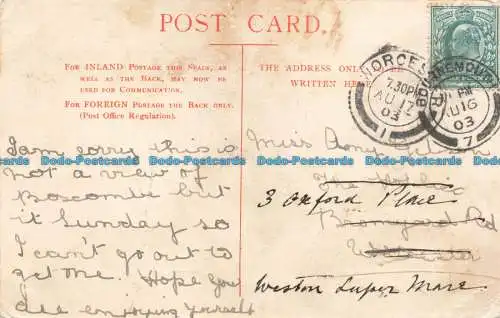 POST CARD.
FOR INLAND POSTAGE THIS SPACE, AS
WELL AS THE BACK, MAY NOW BE
USED FOR COMMUNICATION.
FOR FOREIGN POSTAGE THE BACK ONLY.
(Post Office Regulation).
THE ADDRESS ONLY
WRITTEN HERE
WORCESTER
7.30PM
AU 17
03
1
BOURNEMOUTH
PM
AU 16
03
7
I am sorry this is
not a view of
Boscombe but
it Sunday so
I can't go out to
get one. Hope you
are enjoying yourself
Miss Amy
The
3 Oxford Place
Bromyard Rd
Worcester
Weston Super Mare
Bodo-Postcards